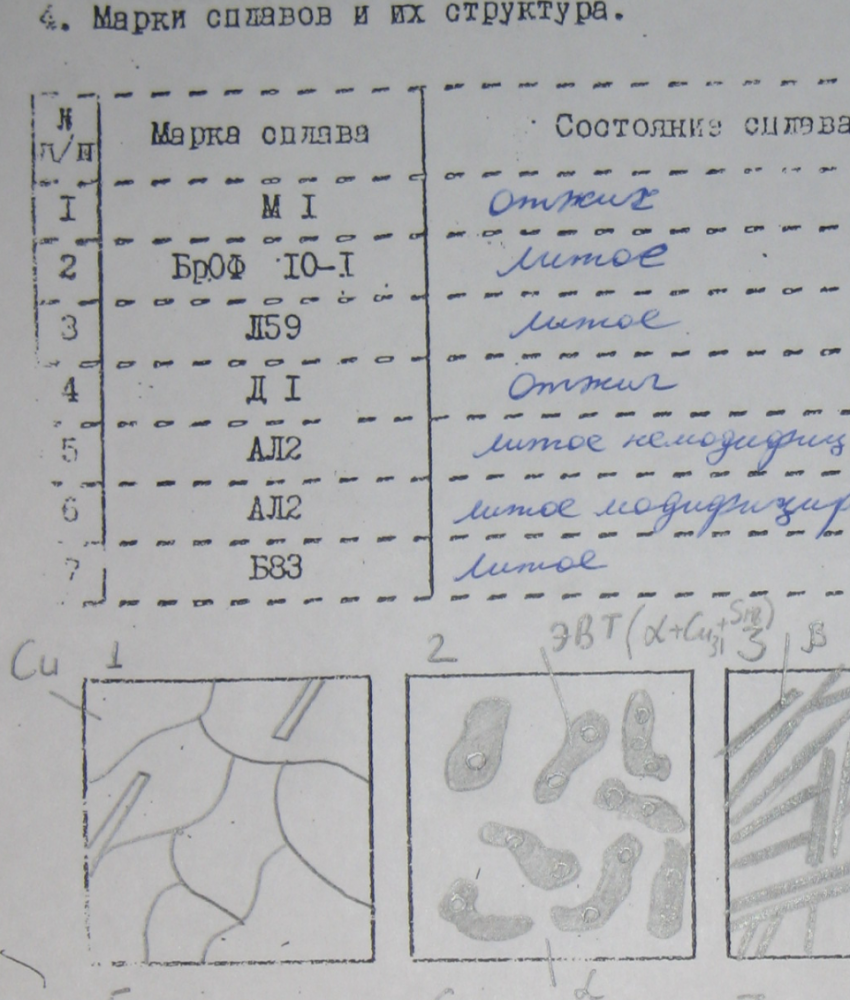 4. Марки сплавов и их структура.
№ п/п Марка сплава Состояние сплава
I М I отжих
2 БрОФ IO-I литое
3 Л59 литое
4 Д I отжиг
5 АЛ2 литое немодифиц
6 АЛ2 литое модифицир
7 Б83 литое
ЭВТ (α+Cu31+Sn8)
Cu 1 2 3 β
α